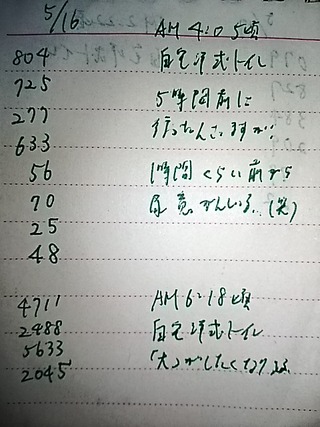 5/16 AM 4:05頃
804 自宅洋式トイレ
725
277 5時間前に
633 行ったんですが?
56 1時間くらい前から
70 尿意がんしる、(笑)
25
48
4711 AM 6:18頃
2488 自宅洋式トイレ
5633 「大」がしたくなり
2045